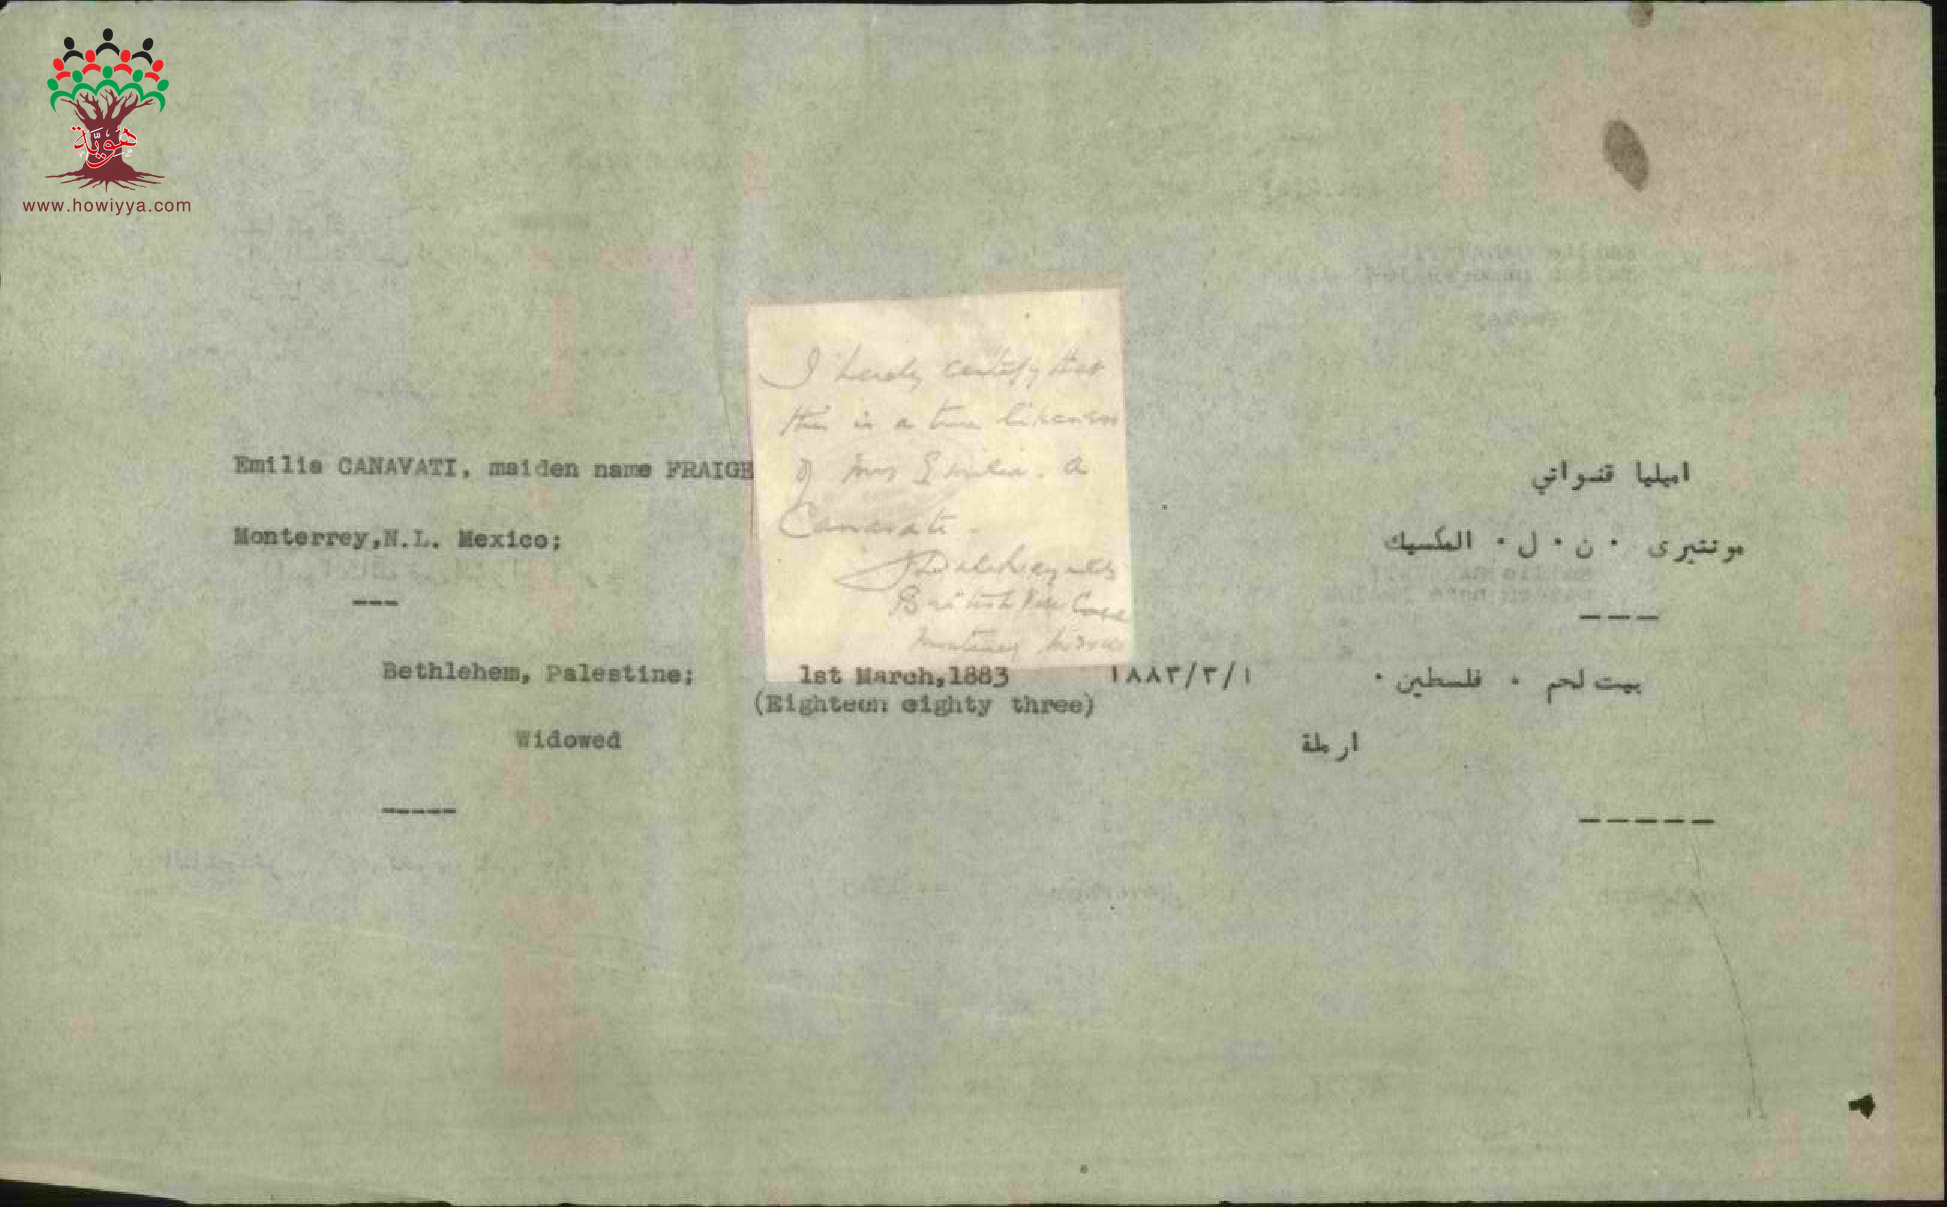 هويّة
www.howiyya.com
I hereby certify that
this is a true likeness
of Mrs Emilia. A
Canavati.
British Vice Consul
Monterrey, Mexico
Emilia CANAVATI, maiden name FRAIGE
اميليا قنواتي
Monterrey,N.L. Mexico;
مونتيرى . ن . ل . المكسيك
---
---
Bethlehem, Palestine; 1st March,1883 ١٨٨٣/٣/١ بيت لحم . فلسطين .
(Eighteen eighty three)
Widowed ارملة
-----
-----